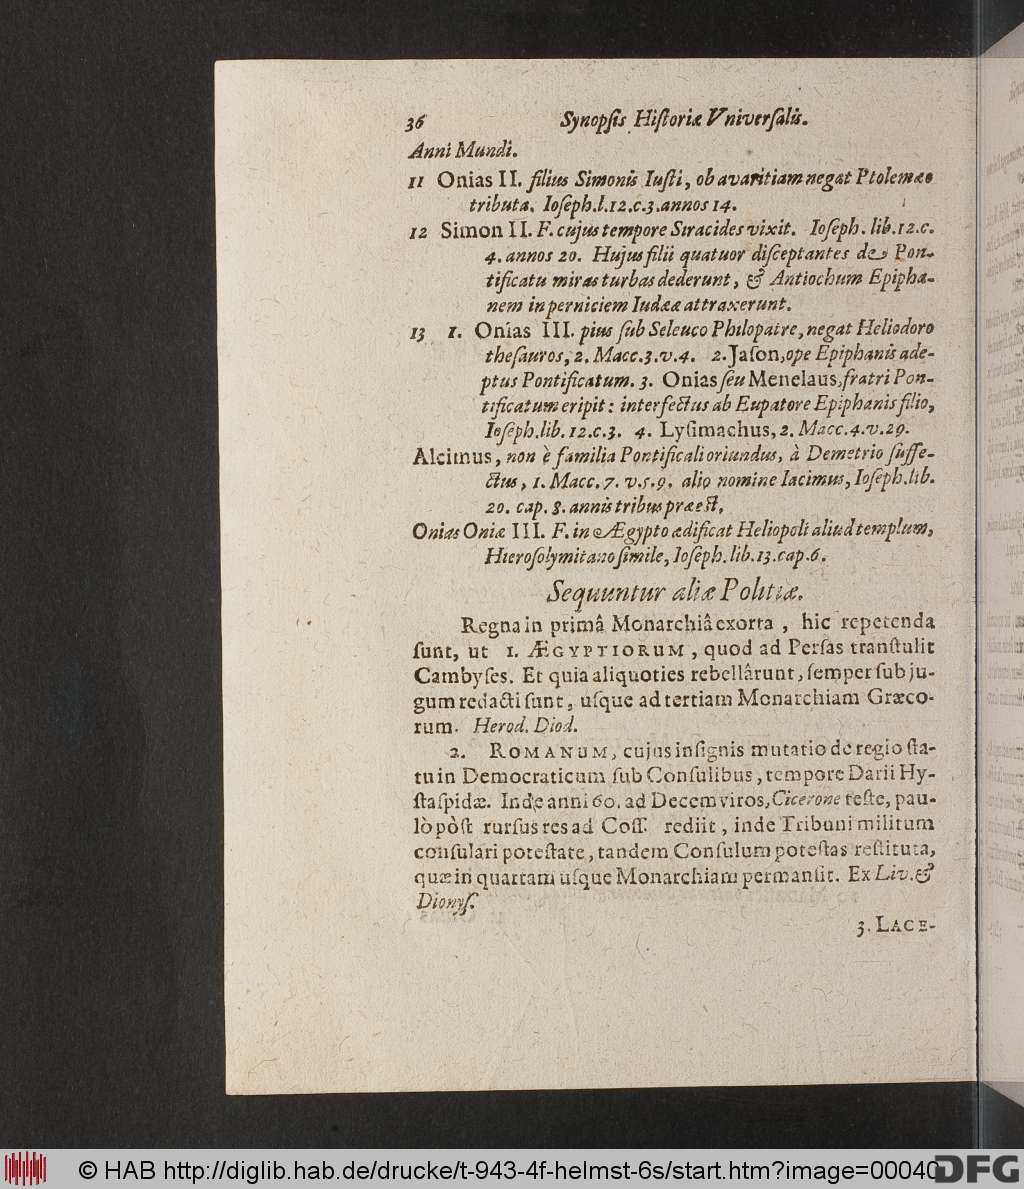 36 Synopſis Hiſtoriæ Vniverſalis.
Anni Mundi.
11 Onias II. filius Simonis Iuſti, ob avaritiam negat Ptolemæo
tributa. Ioſeph.l.12.c.3.annos 14.
12 Simon II. F. cujus tempore Siracides vixit. Ioſeph. lib.12.c.
4. annos 20. Hujus filii quatuor diſceptantes de Pon-
tificatu miras turbas dederunt, & Antiochum Epipha-
nem in perniciem Iudææ attraxerunt.
13 1. Onias III. pius ſub Seleuco Philopatre, negat Heliodoro
theſauros, 2. Macc.3.v.4. 2. Jaſon, ope Epiphanis ade-
ptus Pontificatum. 3. Onias ſeu Menelaus, fratri Pon-
tificatum eripit: interfectus ab Eupatore Epiphanis filio,
Ioſeph.lib. 12.c.3. 4. Lyſimachus, 2. Macc.4.v.29.
Alcimus, non è familia Pontificali oriundus, à Demetrio ſuffe-
ctus, 1. Macc. 7. v.5.9. alio nomine Iacimus, Ioſeph.lib.
20. cap. 8. annis tribus præeſt,
Onias Oniæ III. F. in Ægypto ædificat Heliopoli aliud templum,
Hieroſolymitano ſimile, Ioſeph. lib.13.cap.6.
Sequuntur aliæ Politiæ.
Regna in primâ Monarchiâ exorta, hic repetenda
ſunt, ut 1. ÆGYPTIORUM, quod ad Perſas tranſtulit
Cambyſes. Et quia aliquoties rebellârunt, ſemper ſub ju-
gum redacti ſunt, uſque ad tertiam Monarchiam Græco-
rum. Herod. Diod.
2. ROMANUM, cujus inſignis mutatio de regio ſta-
tu in Democraticum ſub Conſulibus, tempore Darii Hy-
ſtaſpidæ. Inde anni 60. ad Decemviros, Cicerone teſte, pau-
lò pòſt rurſus res ad Coſſ. rediit, inde Tribuni militum
conſulari poteſtate, tandem Conſulum poteſtas reſtituta,
quæ in quartam uſque Monarchiam permanſit. Ex Liv. &
Dionyſ.
3. LACE-
© HAB http://diglib.hab.de/drucke/t-943-4f-helmst-6s/start.htm?image=00040
DFG